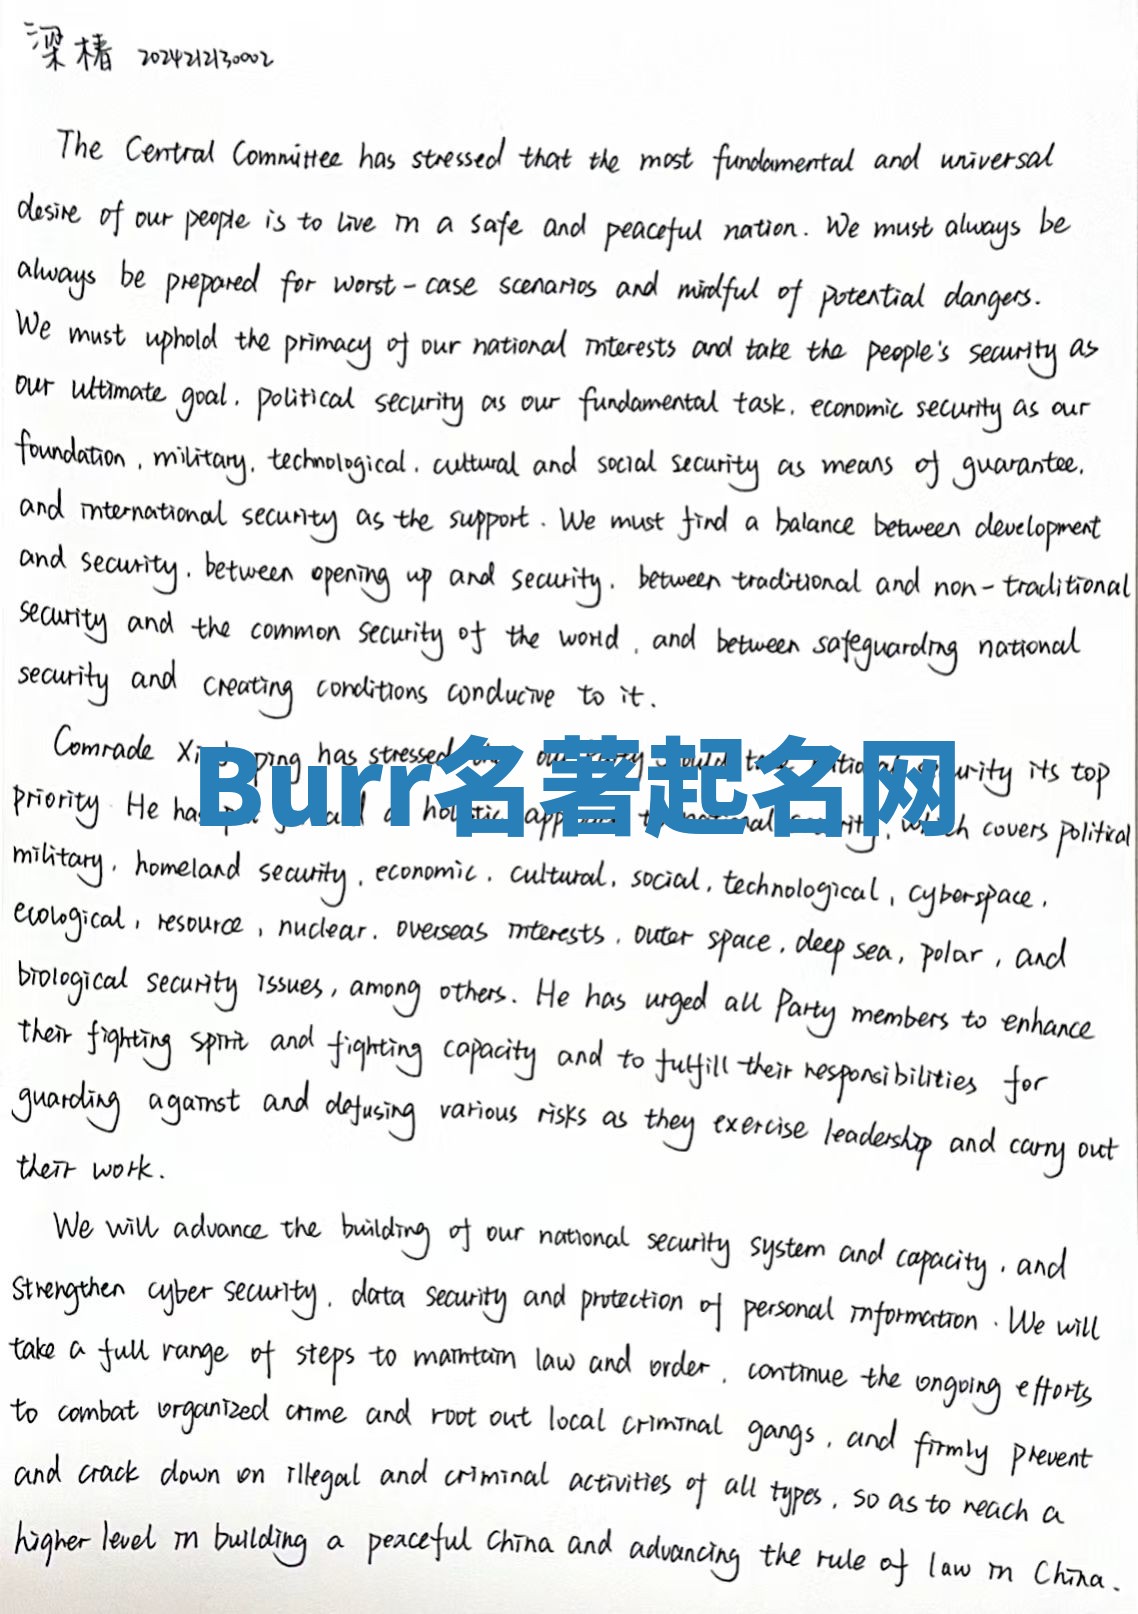 梁椿 2024212130002
The Central Committee has stressed that the most fundamental and universal
desire of our people is to live in a safe and peaceful nation. We must always be
always be prepared for worst-case scenarios and mindful of potential dangers.
We must uphold the primacy of our national interests and take the people's security as
our ultimate goal, political security as our fundamental task, economic security as our
foundation, military, technological, cultural and social security as means of guarantee,
and international security as the support. We must find a balance between development
and security, between opening up and security, between traditional and non-traditional
security and the common security of the world, and between safeguarding national
security and creating conditions conducive to it.
Comrade has stressed its top
Burr名著起名网
priority. He has holistic covers political
military, homeland security, economic, cultural, social, technological, cyberspace,
ecological, resource, nuclear, overseas interests, outer space, deep sea, polar, and
biological security issues, among others. He has urged all Party members to enhance
their fighting spirit and fighting capacity and to fulfill their responsibilities for
guarding against and defusing various risks as they exercise leadership and carry out
their work.
We will advance the building of our national security system and capacity, and
strengthen cyber security, data security and protection of personal information. We will
take a full range of steps to maintain law and order, continue the ongoing efforts
to combat organized crime and root out local criminal gangs, and firmly prevent
and crack down on illegal and criminal activities of all types, so as to reach a
higher level in building a peaceful China and advancing the rule of law in China.